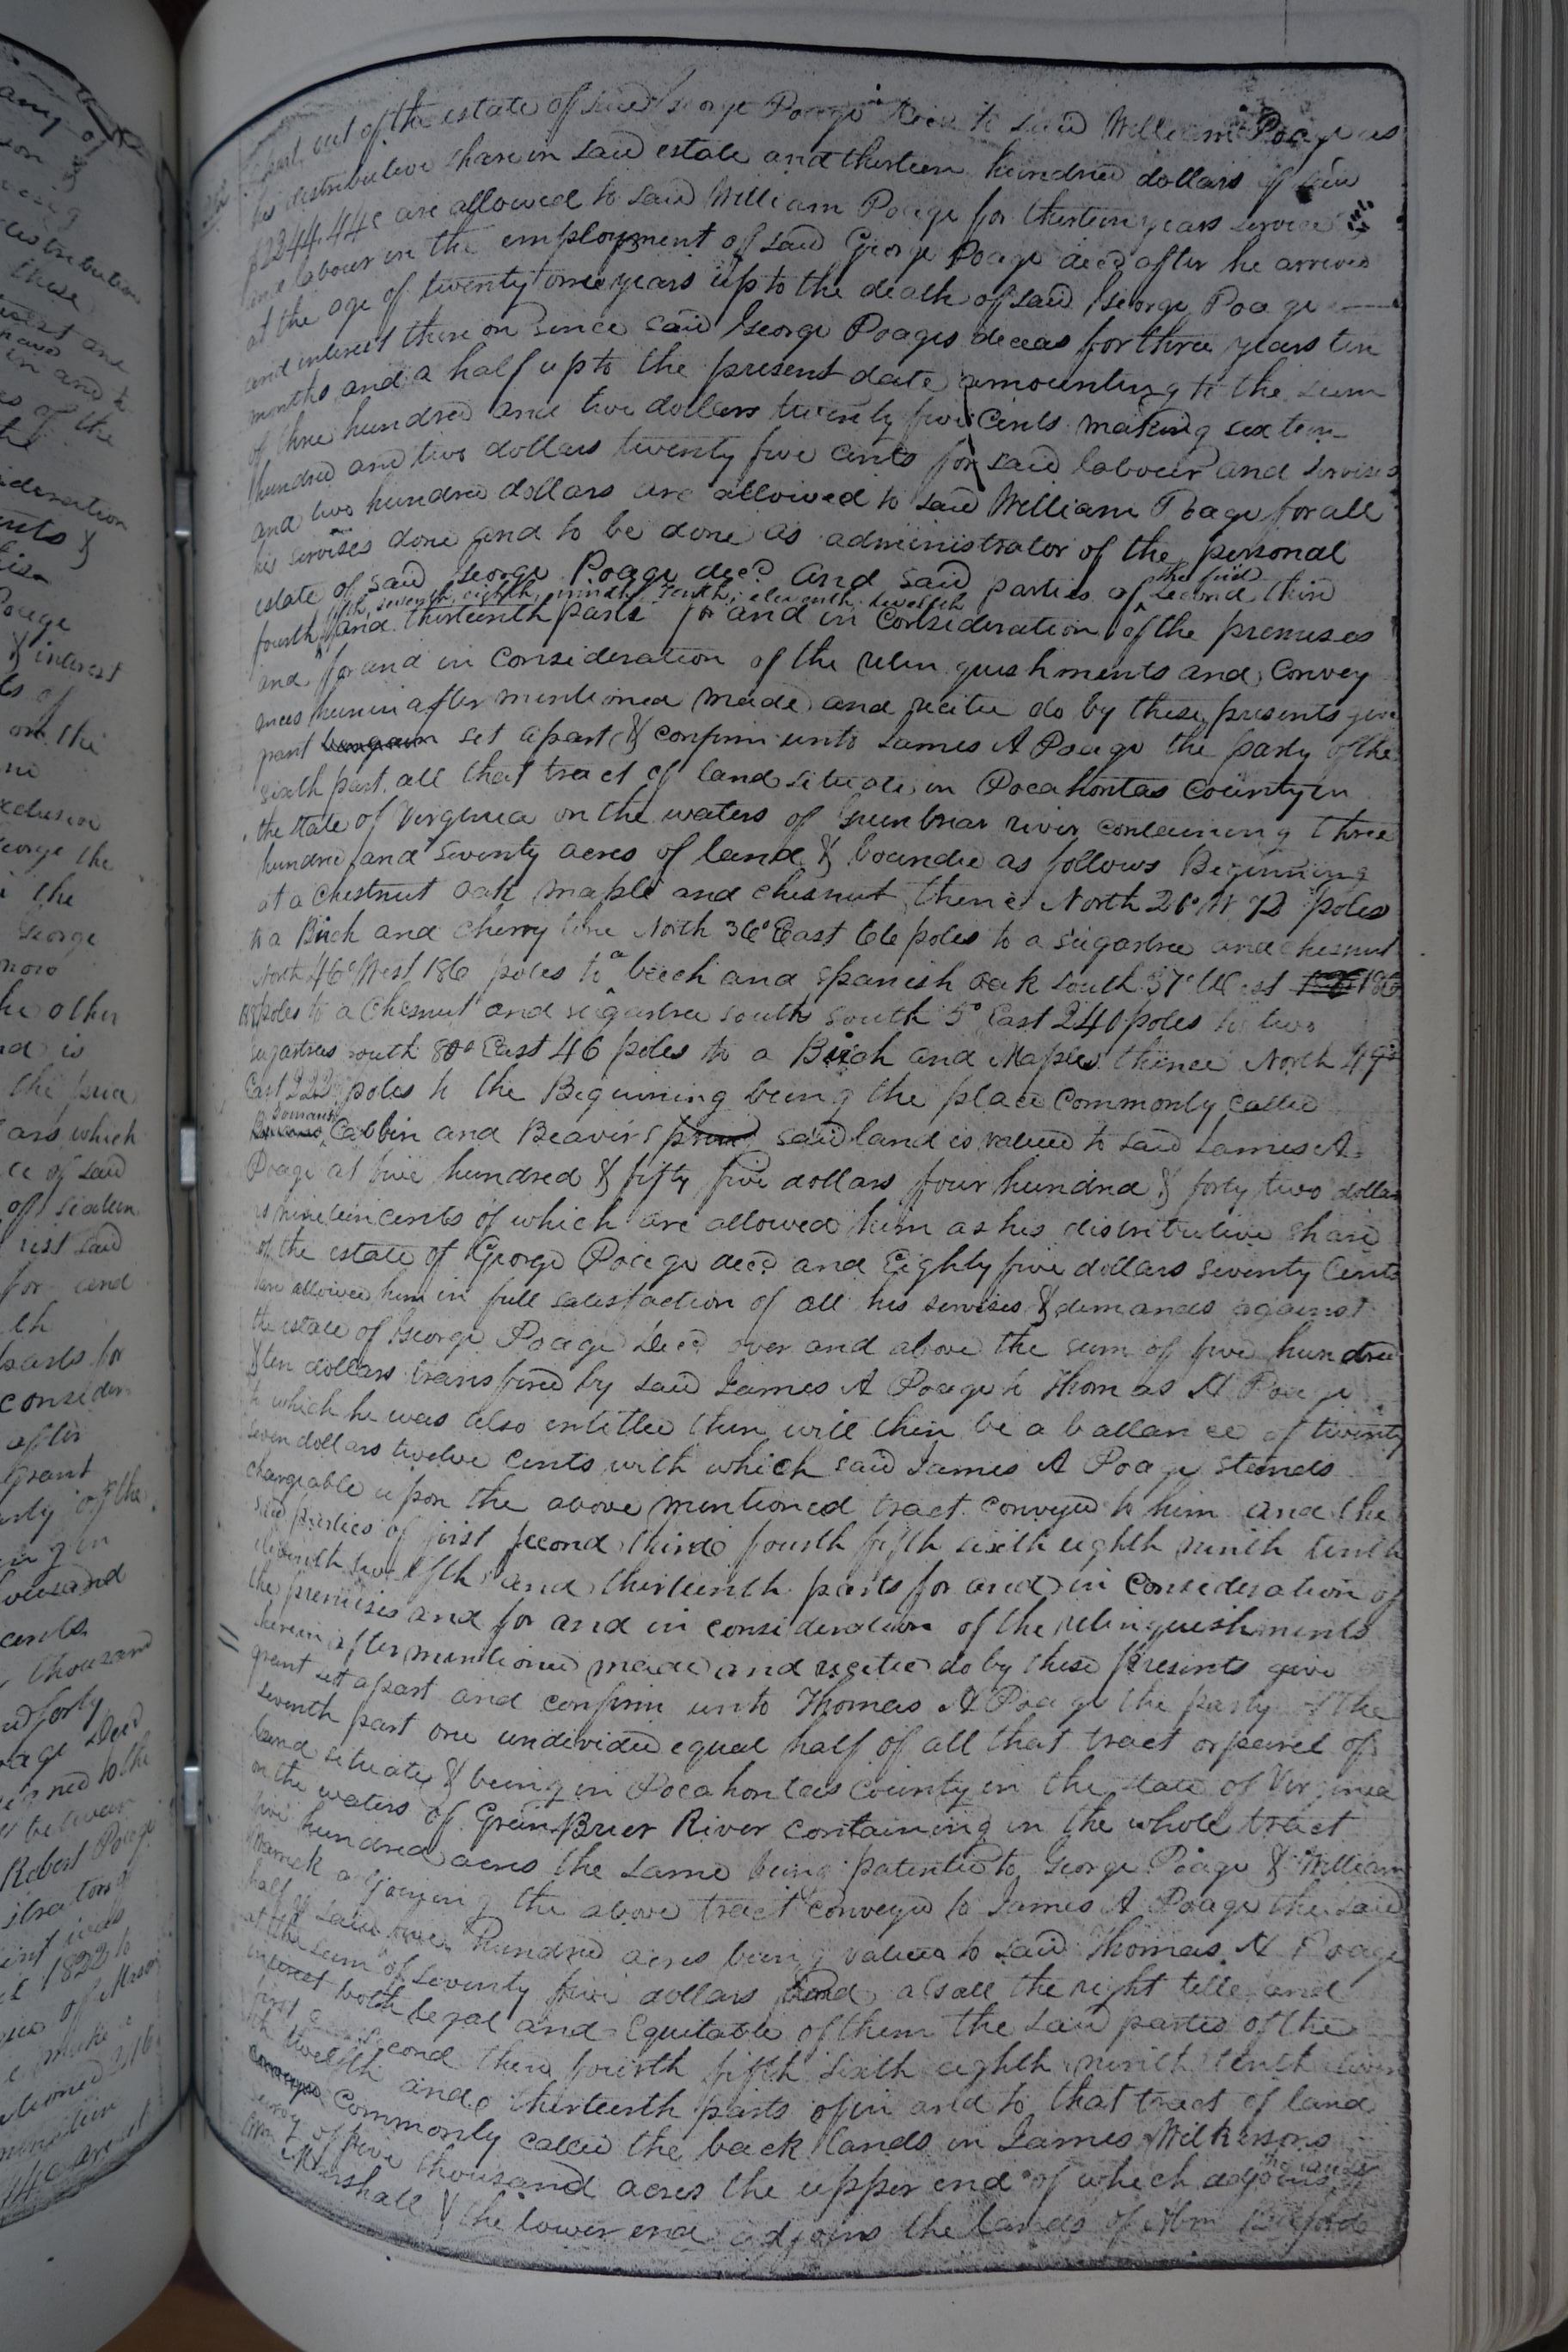 part out of the estate of said George Poage Decd to said William Poage as
his distributive share in said estate and thirteen hundred dollars of said
$2344.44c are allowed to said William Poage for thirteen years service &
and labour in the employment of said George Poage decd after he arrived
at the age of twenty one years up to the death of said George Poage
and interest there on since said George Poages deceas for three years ten
months and a half up to the present date amounting to the sum
of three hundred and two dollars twenty five Cents making sixteen
hundred and two dollars twenty five cents for said labour and servises
and two hundred dollars are allowed to said William Poage for all
his servises done and to be done as administrator of the personal
estate of said George Poage decd and said parties of the first second third
fourth fifth, seventh, eighth, ninth, tenth, eleventh, twelfth and thirteenth parts for and in consideration of the premises
and for and in consideration of the relinquishments and convey
ances herein after mentioned made and recited do by these presents give
grant set apart & confirm unto James A Poage the party of the
sixth part all that tract of land situate in Pocahontas County in
the state of Virginia on the waters of Greenbriar river containing three
hundred and seventy acres of land & bounded as follows Beginning
at a chestnut oak maple and chesnut thence North 20° W 72 poles
to a Birch and cherry tree North 36° East 66 poles to a sugartree and chesnut
North 46° West 186 poles to a beech and spanish oak south 37° West 186
poles to a Chesnut and sugartree south south 5° East 240 poles to two
sugartrees south 80° East 46 poles to a Birch and Maples thence North 49°
East 222 poles to the Beginning being the place commonly called
Cabbin and Beaver spring said land is valued to said James A
Poage at five hundred & fifty five dollars four hundred & forty two dollars
nineteen cents of which are allowed him as his distributive share
of the estate of George Poage decd and Eighty five dollars seventy Cents
are allowed him in full satisfaction of all his servises & demands against
the estate of George Poage Decd over and above the sum of five hundred
& ten dollars transfired by said James A Poage to Thomas A Poage
to which he was also entitled there will then be a ballance of twenty
seven dollars twelve cents with which said James A Poage stands
chargeable upon the above mentioned tract conveyed to him and the
said parties of first second third fourth fifth sixth eighth ninth tenth
eleventh twelfth and thirteenth parts for and in consideration of
the premises and for and in consideration of the relinquishments
herein after mentioned made and recited do by these presents give
grant set apart and confirm unto Thomas A Poage the party of the
seventh part one undivided equal half of all that tract or parcel of
land situate & being in Pocahontas County in the state of Virginia
on the waters of Green Brier River containing in the whole tract
five hundred acres the same being patented to George Poage & William
adjoining the above tract conveyed to James A Poage the said
half of said one hundred acres being valued to said Thomas A Poage
at the sum of seventy five dollars and also all the right title and
interest both legal and Equitable of them the said parties of the
first second third fourth fifth sixth eighth ninth tenth eleven
th twelfth and thirteenth parts of in and to that tract of land
commonly called the back lands in James Wilkersons
survey of five thousand acres the upper end of which adjoins the lands of
Marshall & the lower end adjoins the lands of Abm